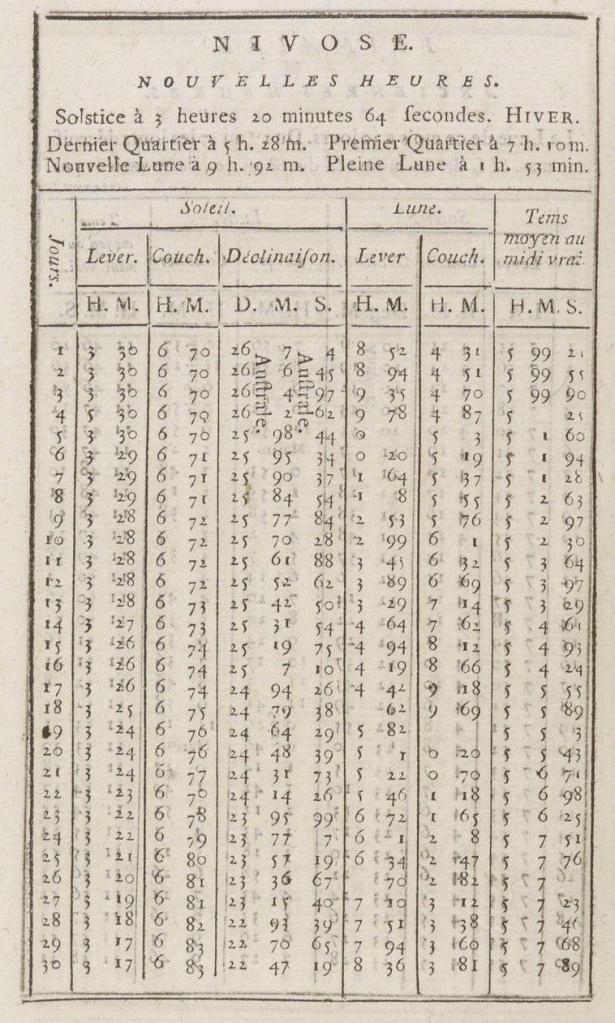 NIVOSE.
NOUVELLES HEURES.
Solstice à 3 heures 20 minutes 64 secondes. HIVER.
Dernier Quartier à 5 h. 28 m. Premier Quartier à 7 h. 10 m.
Nouvelle Lune à 9 h. 92 m. Pleine Lune à 1 h. 53 min.
Jours. Soleil. Lune. Tems moyen au midi vrai.
Lever. Couch. Déclinaison. Lever Couch.
H. M. H. M. D. M. S. H. M. H. M. H. M. S.
Australe. Australe.
1 3 30 6 70 26 7 4 8 52 4 31 5 99 21
2 3 30 6 70 26 6 45 8 94 4 51 5 99 55
3 3 30 6 70 26 4 97 9 35 4 70 5 99 90
4 5 30 6 70 26 2 62 9 78 4 87 5 25
5 3 30 6 70 25 98 44 0 5 3 5 1 60
6 3 29 6 71 25 95 34 0 20 5 19 5 1 94
7 3 29 6 71 25 90 37 1 64 5 37 5 1 28
8 3 29 6 71 25 84 54 1 8 5 55 5 2 63
9 3 28 6 72 25 77 84 2 53 5 76 5 2 97
10 3 28 6 72 25 70 28 2 99 6 1 5 2 30
11 3 28 6 72 25 61 88 3 45 6 32 5 3 64
12 3 28 6 72 25 52 62 3 89 6 69 5 3 97
13 3 28 6 73 25 42 50 3 29 7 14 5 3 29
14 3 27 6 73 25 31 54 4 64 7 62 5 4 61
15 3 26 6 74 25 19 75 4 94 8 12 5 4 93
16 3 26 6 74 25 7 10 4 19 8 66 5 4 24
17 3 26 6 74 24 94 26 4 42 9 18 5 5 55
18 3 25 6 75 24 79 38 62 9 69 5 5 89
19 3 24 6 76 24 64 29 5 82 5 5 3
20 3 24 6 76 24 48 39 5 1 0 20 5 5 43
21 3 24 6 77 24 31 73 5 22 0 70 5 6 71
22 3 23 6 78 24 14 26 5 46 1 18 5 6 98
23 3 22 6 78 23 95 99 6 72 1 65 5 6 25
24 3 22 6 79 23 77 7 6 1 2 8 5 7 51
25 3 21 6 80 23 57 19 6 34 2 47 5 7 76
26 3 20 6 81 23 36 67 70 2 82 5 7
27 3 19 6 81 23 15 40 7 10 3 12 5 7 23
28 3 18 6 82 22 93 39 7 51 3 38 5 7 46
29 3 17 6 83 22 70 65 7 94 3 60 5 7 68
30 3 17 6 83 22 47 19 8 36 3 81 5 7 89